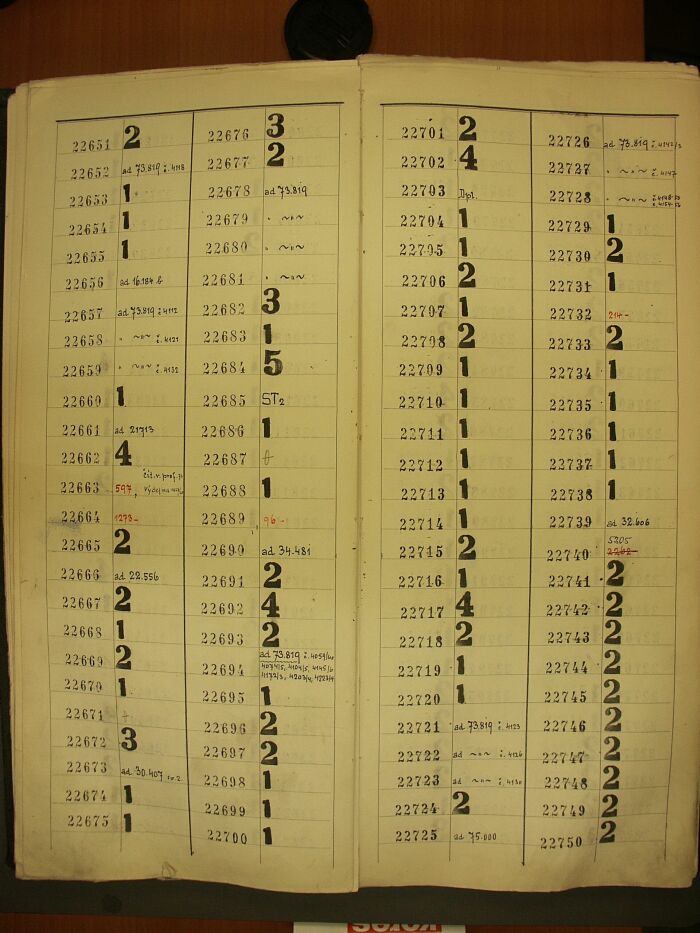 22651 2
22652 ad 73.819 č.4118
22653 1
22654 1
22655 1
22656 ad 16.184 b
22657 ad 73.819 č.4112
22658 " ~"~ č.4121
22659 " ~"~ č.4132
22660 1
22661 ad 21713
22662 4
22663 597,
22664 1273-
22665 2
22666 ad 22.556
22667 2
22668 1
22669 2
22670 1
22671 †
22672 3
22673 ad 30.407
22674 1
22675 1
22676 3
22677 2
22678 ad 73.819
22679 " ~"~
22680 " ~"~
22681 " ~"~
22682 3
22683 1
22684 5
22685 ST2
22686 1
22687
22688 1
22689 96-
22690 ad 34.481
22691 2
22692 4
22693 2
22694 ad 73.819 č.4059/60
4074/5, 4104/5, 4145/6
4172/3, 4203/4, 4223/4
22695 1
22696 2
22697 2
22698 1
22699 1
22700 1
22701 2
22702 4
22703 Dpl.
22704 1
22705 1
22706 2
22707 1
22708 2
22709 1
22710 1
22711 1
22712 1
22713 1
22714 1
22715 2
22716 1
22717 4
22718 2
22719 1
22720 1
22721 ad 73.819 č.4123
22722 ad ~"~ č.4126
22723 ad ~"~ č.4130
22724 2
22725 ad 75.000
22726 ad 73.819 č.4142/3
22727 " ~"~ č.4147
22728 " ~"~
22729 1
22730 2
22731 1
22732 214-
22733 2
22734 1
22735 1
22736 1
22737 1
22738 1
22739 ad 32.606
5205
22740 2262-
22741 2
22742 2
22743 2
22744 2
22745 2
22746 2
22747 2
22748 2
22749 2
22750 2